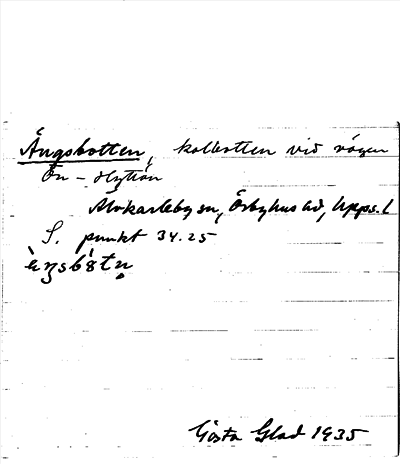 Ängsbotten, kolbotten vid vägen
Ön - Hyttön
Älvkarleby sn, Örbyhus hd, Upps. l
S. punkt 34.25
Gösta Glad 1935